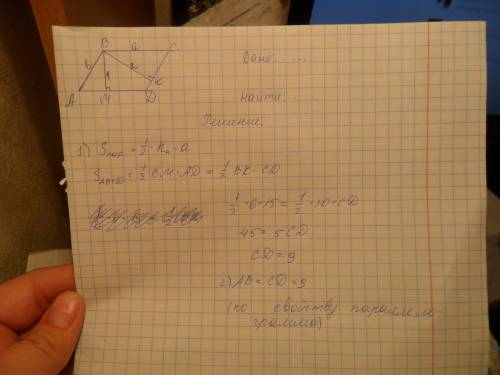 B a C
b 2
K
A M D
Дано: .....
Найти: .....
Решение.
1) Sпар = 1/2 · hₐ · a
S_ABCD = 1/2 BM · AD = 1/2 BK · CD
1/2 · 6 · 15 = 1/2 · 10 · CD
45 = 5 CD
CD = 9
2) AB = CD = 9
(по свойству параллело-
грамма)